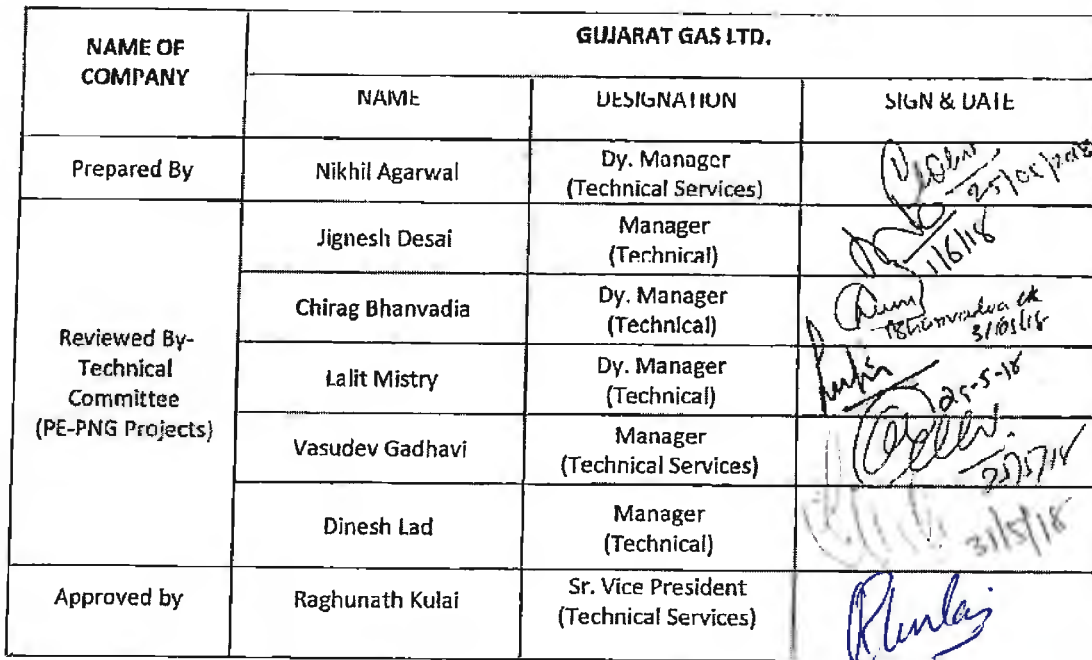 NAME OF
COMPANY
GUJARAT GAS LTD.
NAME
DESIGNATION
SIGN & DATE
Prepared By
Nikhil Agarwal
Dy. Manager
(Technical Services)
25/05/2018
Reviewed By-
Technical
Committee
(PE-PNG Projects)
Jignesh Desai
Manager
(Technical)
1/6/18
Chirag Bhanvadia
Dy. Manager
(Technical)
Bhanvadia ck
31/05/18
Lalit Mistry
Dy. Manager
(Technical)
25-5-18
Vasudev Gadhavi
Manager
(Technical Services)
25/5/18
Dinesh Lad
Manager
(Technical)
31/5/18
Approved by
Raghunath Kulai
Sr. Vice President
(Technical Services)
RKulai